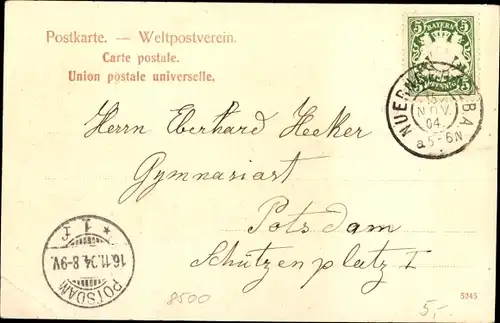 Postkarte. — Weltpostverein.
Carte postale.
Union postale universelle.
5 BAYERN 5
5 PFENNIG 5
NUERNB
NOV.
04.
a5-6N
Herrn Eberhard Hecker
Gymnasiast
Potsdam
Schützenplatz I
* 1 f *
16.11.04.8-9V.
POTSDAM
8500
5,-
5245